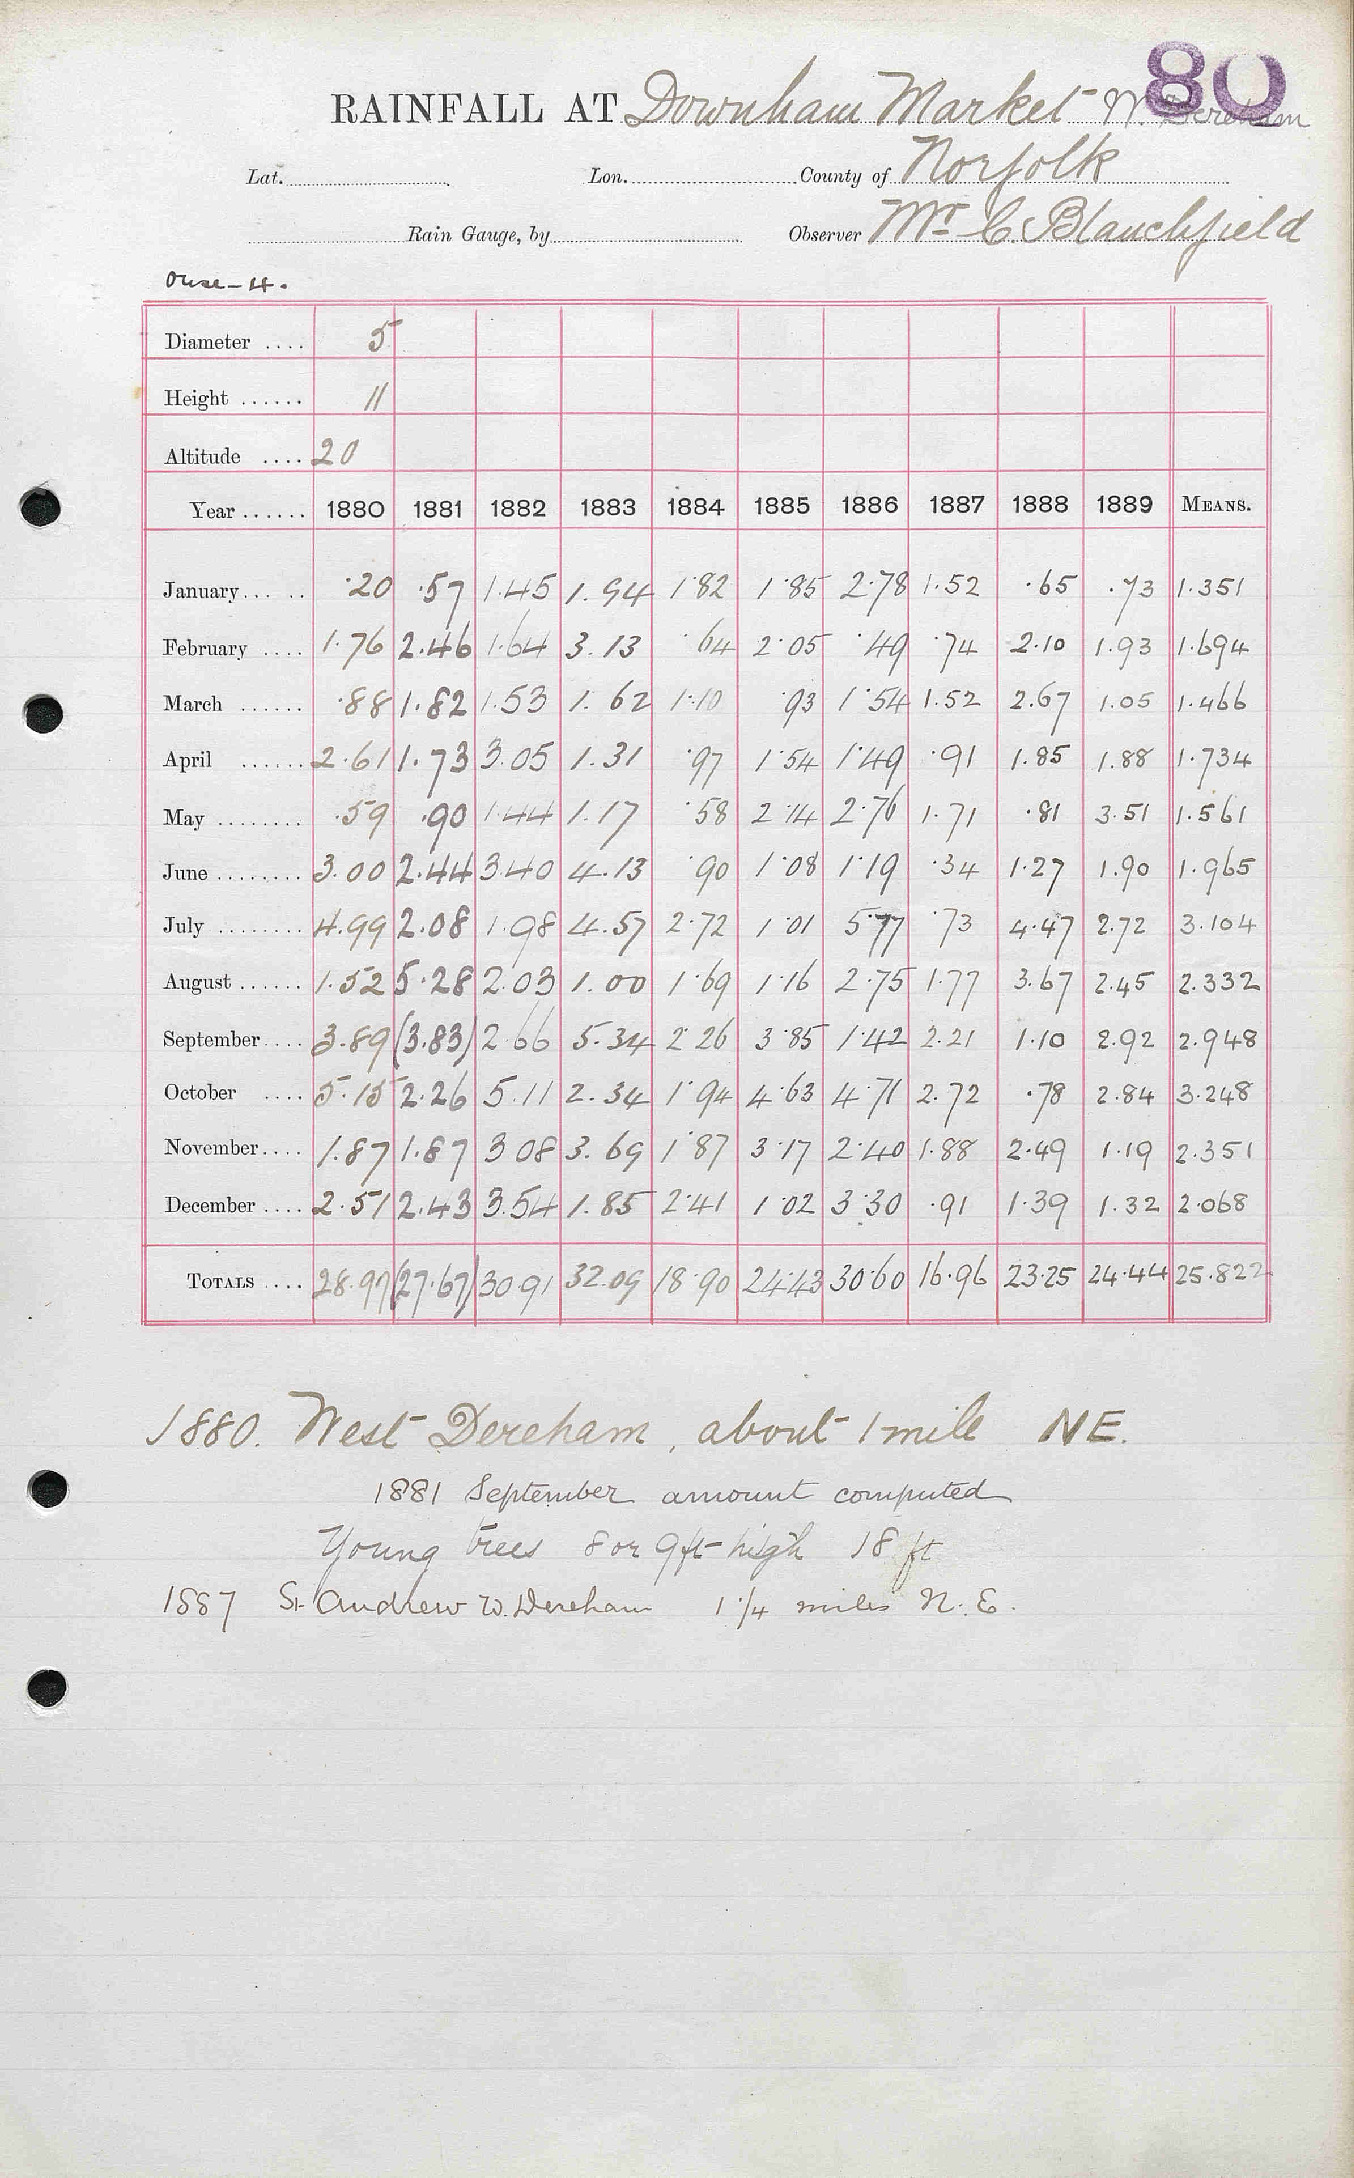 80
RAINFALL AT Downham Market W. Dereham
Lat. Lon. County of Norfolk
Rain Gauge, by Observer Mr. C. Blanchfield
Ouse-4.
Diameter .... 5
Height ...... 11
Altitude .... 20
Year ...... 1880 1881 1882 1883 1884 1885 1886 1887 1888 1889 MEANS.
January... .. ·20 ·57 1·45 1.94 1·82 1·85 2·78 1·52 ·65 ·73 1·351
February .... 1·76 2·46 1·64 3.13 ·64 2·05 ·49 ·74 2·10 1·93 1·694
March ...... ·88 1·82 1·53 1.62 1·10 ·93 1·54 1·52 2·67 1·05 1·466
April ...... 2·61 1·73 3·05 1.31 ·97 1·54 1·49 ·91 1·85 1·88 1·734
May ........ ·59 ·90 1·44 1.17 ·58 2·14 2·76 1·71 ·81 3·51 1·561
June ........ 3.00 2.44 3·40 4.13 ·90 1·08 1·19 ·34 1·27 1·90 1·965
July ........ 4.99 2.08 1·98 4.57 2·72 1·01 5·77 ·73 4·47 2·72 3·104
August ...... 1·52 5·28 2·03 1.00 1·69 1·16 2·75 1·77 3·67 2·45 2·332
September.... 3·89 (3.83) 2·66 5.34 2·26 3·85 1·42 2·21 1·10 2·92 2·948
October .... 5·15 2·26 5·11 2.34 1·94 4·63 4·71 2·72 ·78 2·84 3·248
November.... 1.87 1.87 3·08 3.69 1·87 3·17 2·40 1·88 2·49 1·19 2·351
December .... 2·51 2.43 3.54 1.85 2·41 1·02 3·30 ·91 1·39 1·32 2·068
TOTALS .... 28.97 (27.67) 30·91 32.09 18·90 24·43 30·60 16·96 23·25 24·44 25·822
1880. West Dereham, about 1 mile NE.
1881 September amount computed
Young trees 8 or 9 ft high 18 ft
1887 St. Andrew W. Dereham 1 1/4 miles N. E.